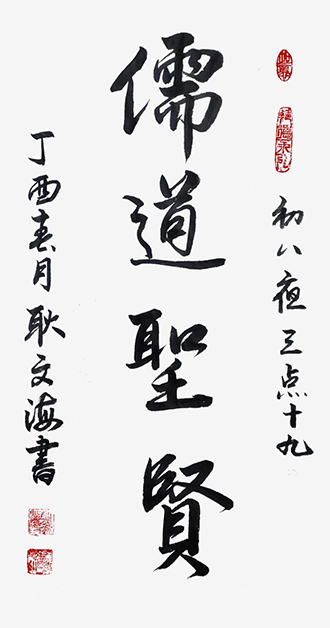 初八夜三点十九
儒道聖賢
丁酉春月耿文海書